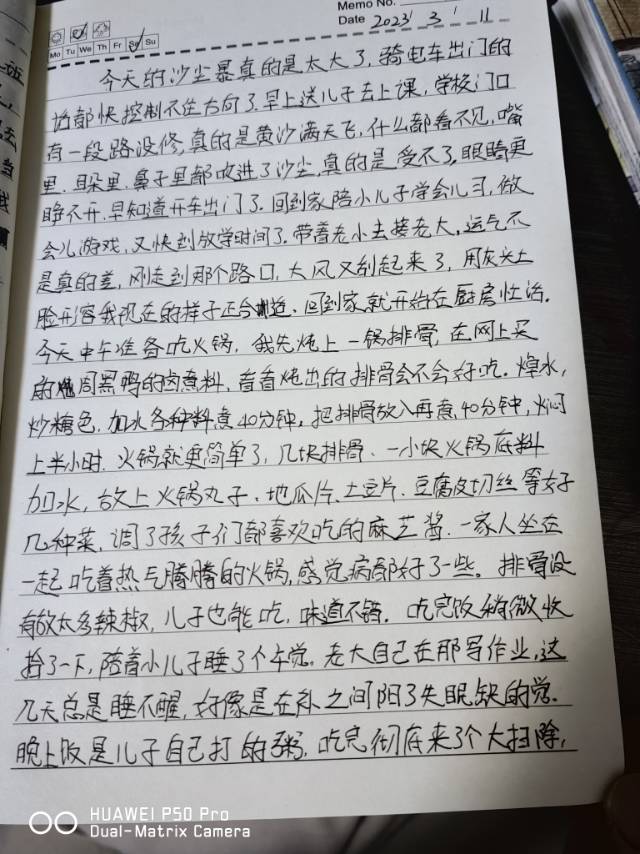 Memo No.
Mo Tu We Th Fr Sa Su
Date 2023 / 3 / 11
今天的沙尘暴真的是太大了,骑电车出门的
话都快控制不住方向了.早上送儿子去上课,学校门口
有一段路没修,真的是黄沙满天飞,什么都看不见,嘴
里.耳朵里.鼻子里都吹进了沙尘,真的是受不了.眼睛更
睁不开,早知道开车出门了.回到家陪小儿子学会儿习,做
会儿游戏,又快到放学时间了.带着老小去接老大,运气不
是真的差,刚走到那个路口,大风又刮起来了,用灰头土
脸形容我现在的样子正合适.回到家就开始在厨房忙活.
今天中午准备吃火锅,我先炖上一锅排骨,在网上买
的周黑鸭的卤煮料,看看炖出的排骨会不会好吃.焯水,
炒糖色,加水各种料煮40分钟,把排骨放入再煮40分钟,焖
上半小时.火锅就更简单了,几块排骨.一小块火锅底料
加水,放上火锅丸子.地瓜片.土豆片.豆腐皮切丝等好
几种菜,调了孩子们都喜欢吃的麻芝酱.一家人坐在
一起吃着热气腾腾的火锅,感觉病都好了一些。排骨没
有放太多辣椒,儿子也能吃,味道不错.吃完饭稍微收
拾了一下,陪着小儿子睡了个午觉.老大自己在那写作业,这
几天总是睡不醒,好像是在补之间阳了失眠缺的觉.
晚上饭是儿子自己打的粥.吃完彻底来了个大扫除,
HUAWEI P50 Pro
Dual-Matrix Camera